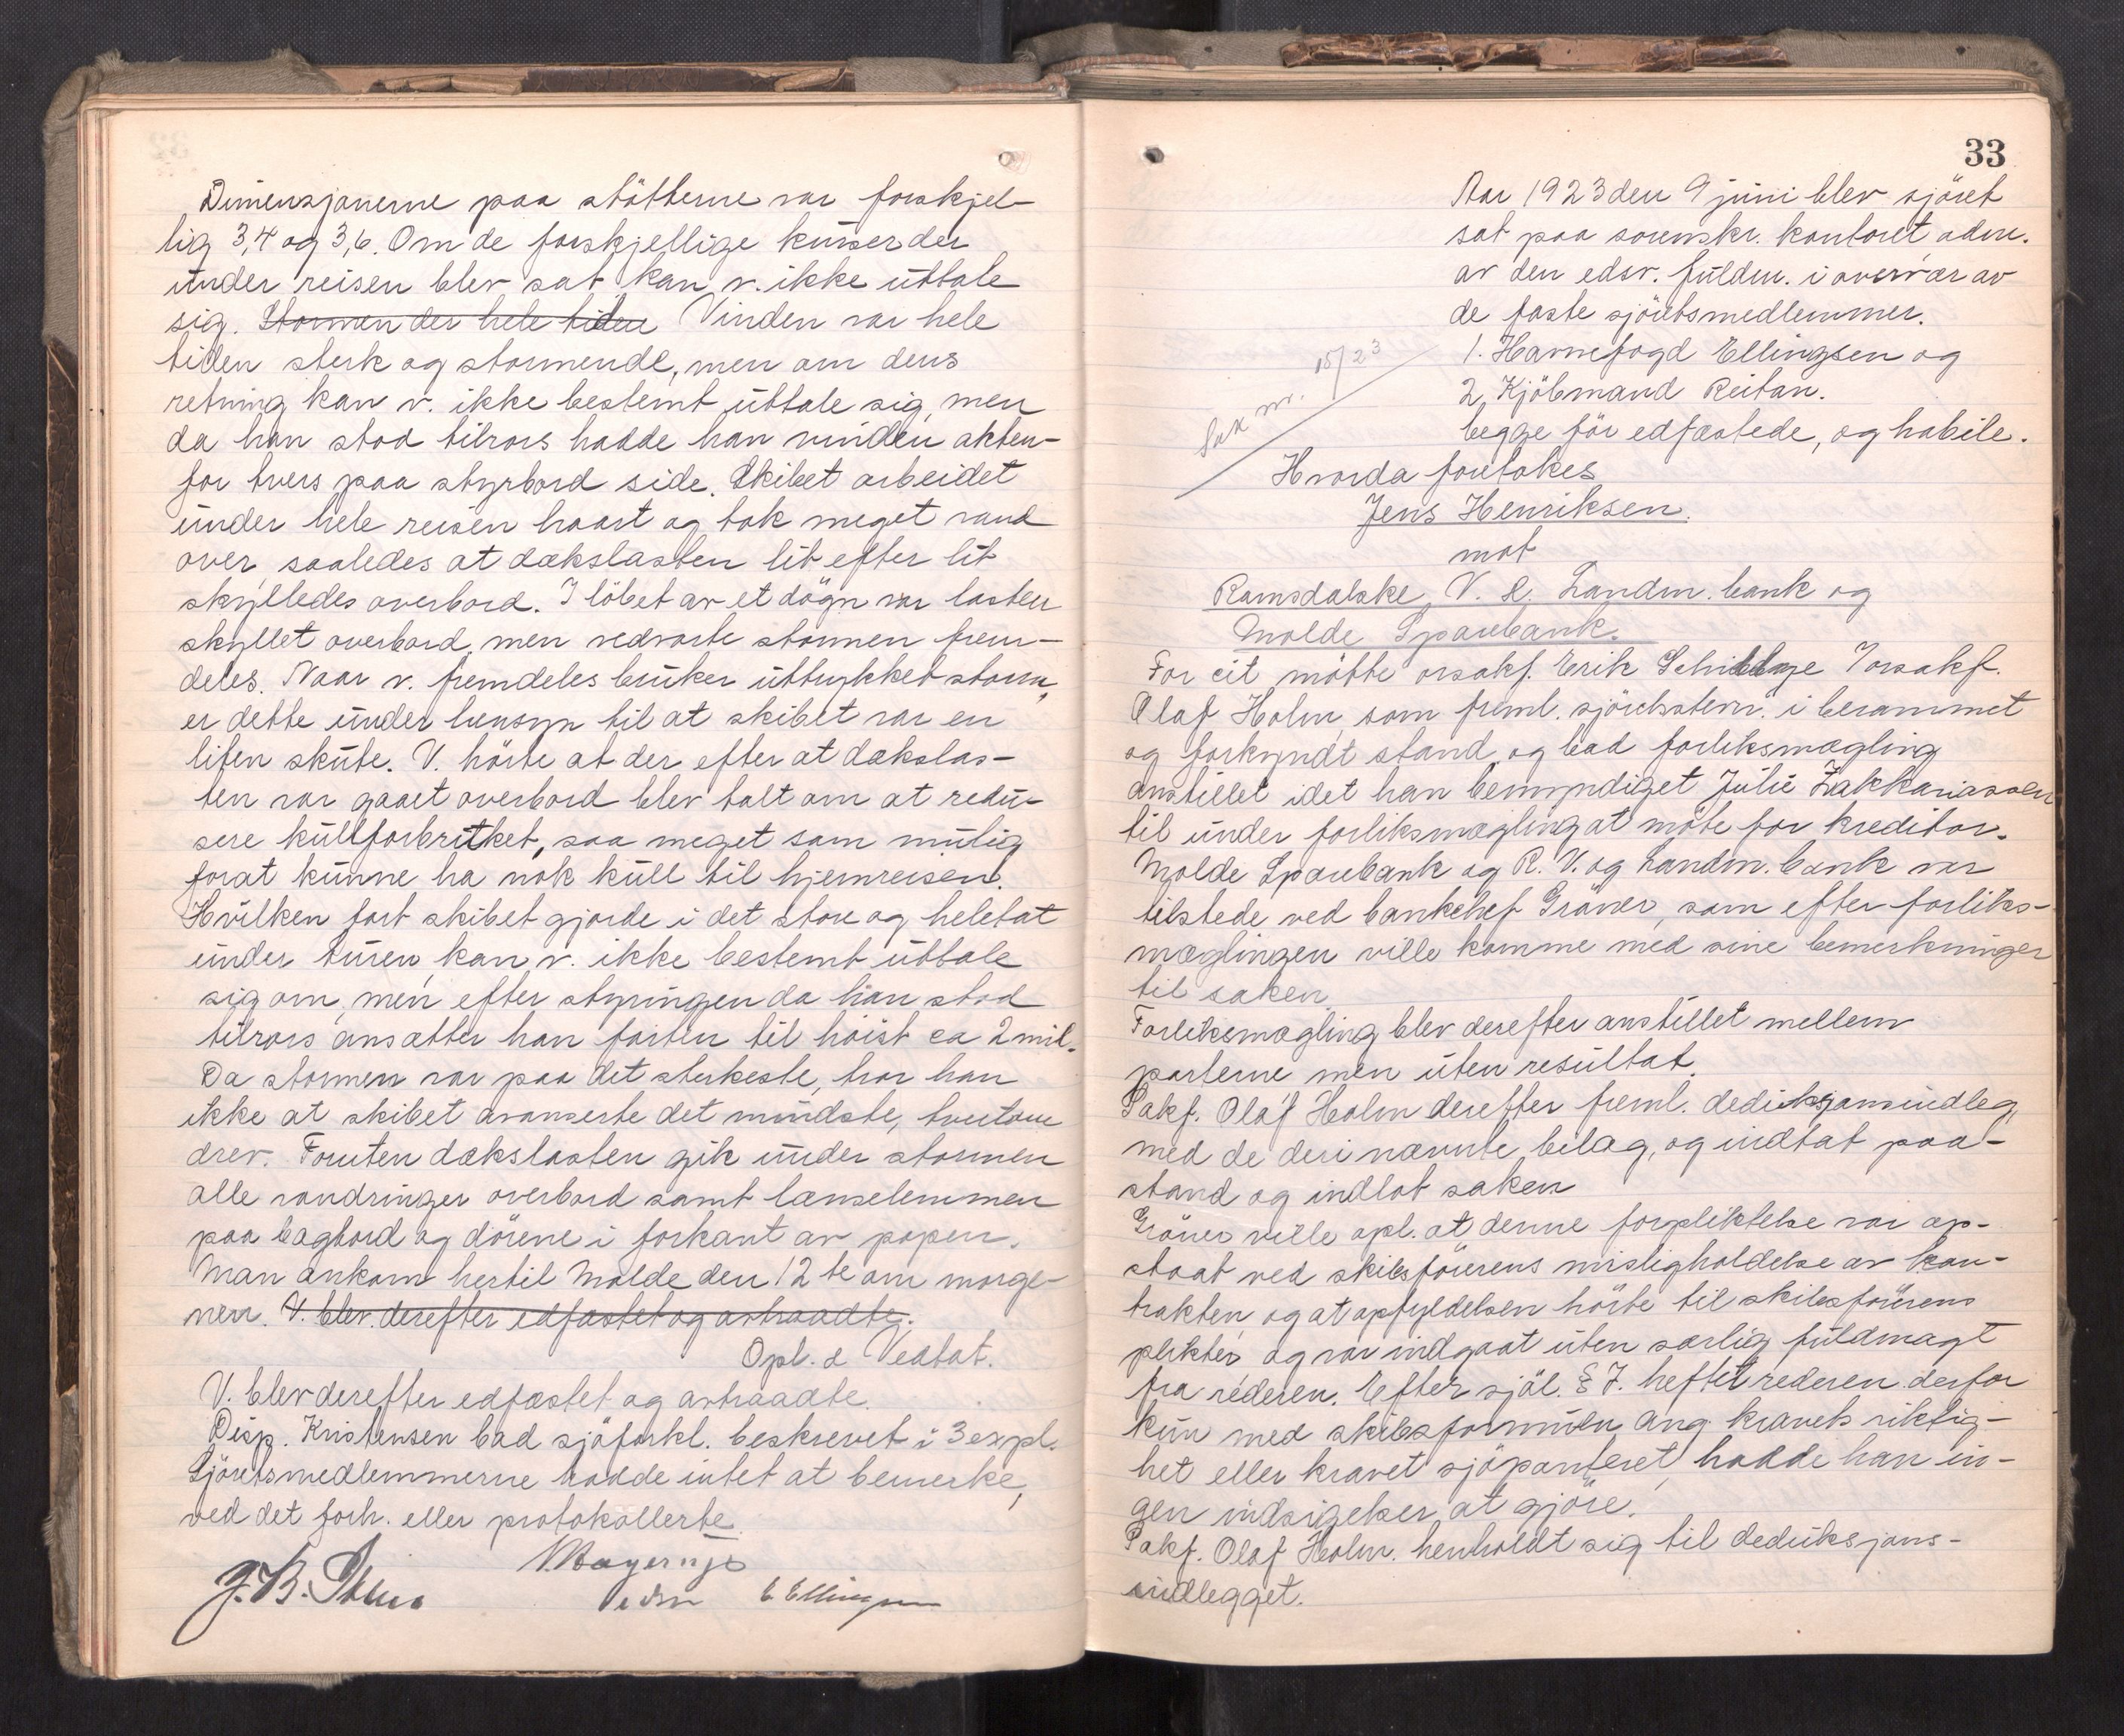 Dimensjonerne paa støtterne var forskjel-
lig 3,4 og 3,6. Om de forskjellige kurser der
under reisen blev sat kan v. ikke uttale
sig. Stormen der hele tiden Vinden var hele
tiden sterk og stormende, men om dens
retning kan v. ikke bestemt uttale sig, men
da han stod tilrors hadde han vinden akten-
for tvers paa styrbord side. Skibet arbeidet
under hele reisen haart og tok meget vand
over saaledes at dækslasten lit efter lit
skylledes overbord. I løbet av et døgn var lasten
skyllet overbord, men vedvarte stormen frem-
deles. Naar v. fremdeles bruker uttrykket storm,
er dette under hensyn til at skibet var en
liten skute. V. hørte at der efter at dækslas-
ten var gaaet overbord blev talt om at redu-
sere kullforbruket, saa meget som mulig
forat kunne ha nok kull til hjemreisen.
Hvilken fart skibet gjorde i det store og heletat
under turen kan v. ikke bestemt uttale
sig om, men efter styringen da han stod
tilrors ansætter han farten til høist ca 2 mil.
Da stormen var paa det sterkeste, tror han
ikke at skibet avanserte det mindste, tvertom
drev. Foruten dækslasten gik under stormen
alle vandringer overbord samt lænselemmen
paa bagbord og dørene i forkant av popen.
Man ankom hertil Molde den 12te om morge-
nen. V. blev derefter edfæstet og avtraadte.
Opl. & Vedtat.
V. blev derefter edfæstet og avtraadte.
Disp. Kristensen bad sjøforkl. beskrevet i 3 expl.
Sjøretsmedlemmerne hadde intet at bemerke,
ved det forh. eller protokollerte
E Ellingsen
33
Aar 1923 den 9 juni blev sjøret
sat paa sorenskr. kontoret adm.
av den edsv. fuldm. i overvær av
de faste sjøretsmedlemmer.
1. Havnefogd Ellingsen og
2. Kjøbmand Reitan.
begge før edfæstede, og habile.
Sak nr. 15/23
Hvorda foretokes
Jens Henriksen
mot
Romsdalske V. & Landm. bank og
Molde Sparebank.
For cit møtte orsakf. Erik v/orsakf.
Olaf Holm, som freml. sjøretsstevn. i berammet
og forkyndt stand, og bad forliksmægling
anstillet idet han bemyndiget Juliu Zakkariassen
til under forliksmægling at møte for kreditor.
Molde Sparebank og R. V. og Landm. bank var
tilstede ved bankchef Grøner, som efter forliks-
mæglingen ville komme med sine bemerkninger
til saken.
Forliksmægling blev derefter anstillet mellem
parterne men uten resultat.
Sakf. Olaf Holm derefter freml. deduksjonsindleg,
med de deri nævnte bilag, og indtat paa-
stand og indlot saken
Grøner ville opl. at denne forpliktelse var op-
staat ved skibsførerens misligholdelse av kon-
trakten og at opfyldelsen hørte til skibsførerens
plikter og var indgaat uten særlig fuldmagt
fra rederen. Efter sjøl. § 7. heftet rederen derfor
kun med skibsformuen ang. kravets riktig-
het eller kravet sjøpanteret, hadde han in-
gen indsigelser at gjøre.
Sakf. Olaf Holm. henholdt sig til deduksjons-
indlegget.